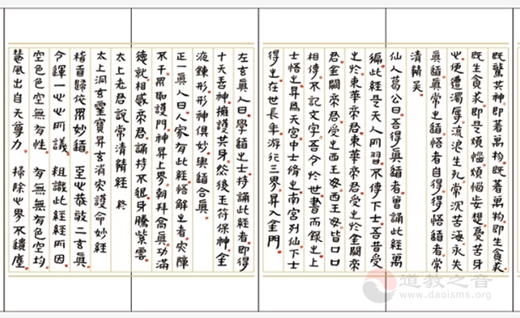 既驚其神即著萬物既著萬物即生貪求
既生貪求即是煩惱煩惱妄想憂苦身
心便遭濁辱流浪生死常沉苦海永失
真道真常之道悟者自得得悟道者常
清靜矣
仙人葛公曰吾得真道者曾誦此經萬
編此經是天人所習不傳下士吾昔受
之於東華帝君東華帝君受之於金闕帝
君金闕帝君受之西王母西王母皆口口
相傳不記文字吾今於世書而錄之上
士悟之昇為天宮中士脩之南宮列仙下士
得之在世長年游行三界昇入金門
左玄真人曰學道之士持誦此經者即得
十天善神擁護其身然後玉符保神金
液鍊形形神俱妙與道合真
正一真人曰人家有此經悟解之者灾障
不干眾聖護門神昇上界朝拜高真功滿
德就相感帝君誦持不退身騰紫雲
太上老君說常清靜經 終
太上洞玄靈寶昇玄消灾護命妙經
稽首皈依眾妙道 至心恭敬二玄真
今鐸一心心所議 粗識此經經所因
空色空空無有性 有無無有色空均
慧風出自天尊力 掃除心界不纖塵
道教之音
www.daoisms.org